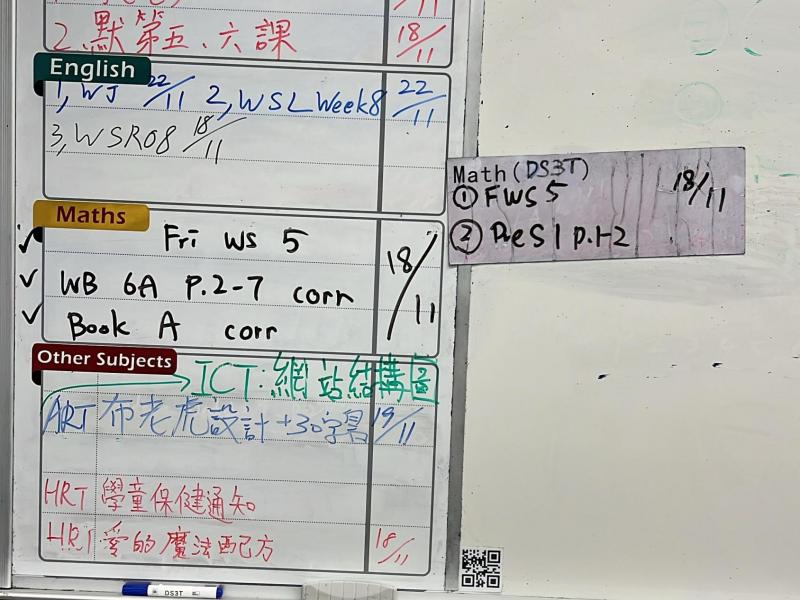 18/11
2. 默第五、六課 18/11
English
1, WJ 22/11 2, WSL Week8 22/11
3, WSR08 18/11
Maths
Fri WS 5
WB 6A P.2-7 corr 18/11
Book A corr
Math (DS3T)
① FWS 5 18/11
② PreS1 p.1-2
Other Subjects
ICT: 網站結構圖
ART 布老虎設計+30字 19/11
HRT 學童保健通知
HRT 愛的魔法配方 18/11
DS3T